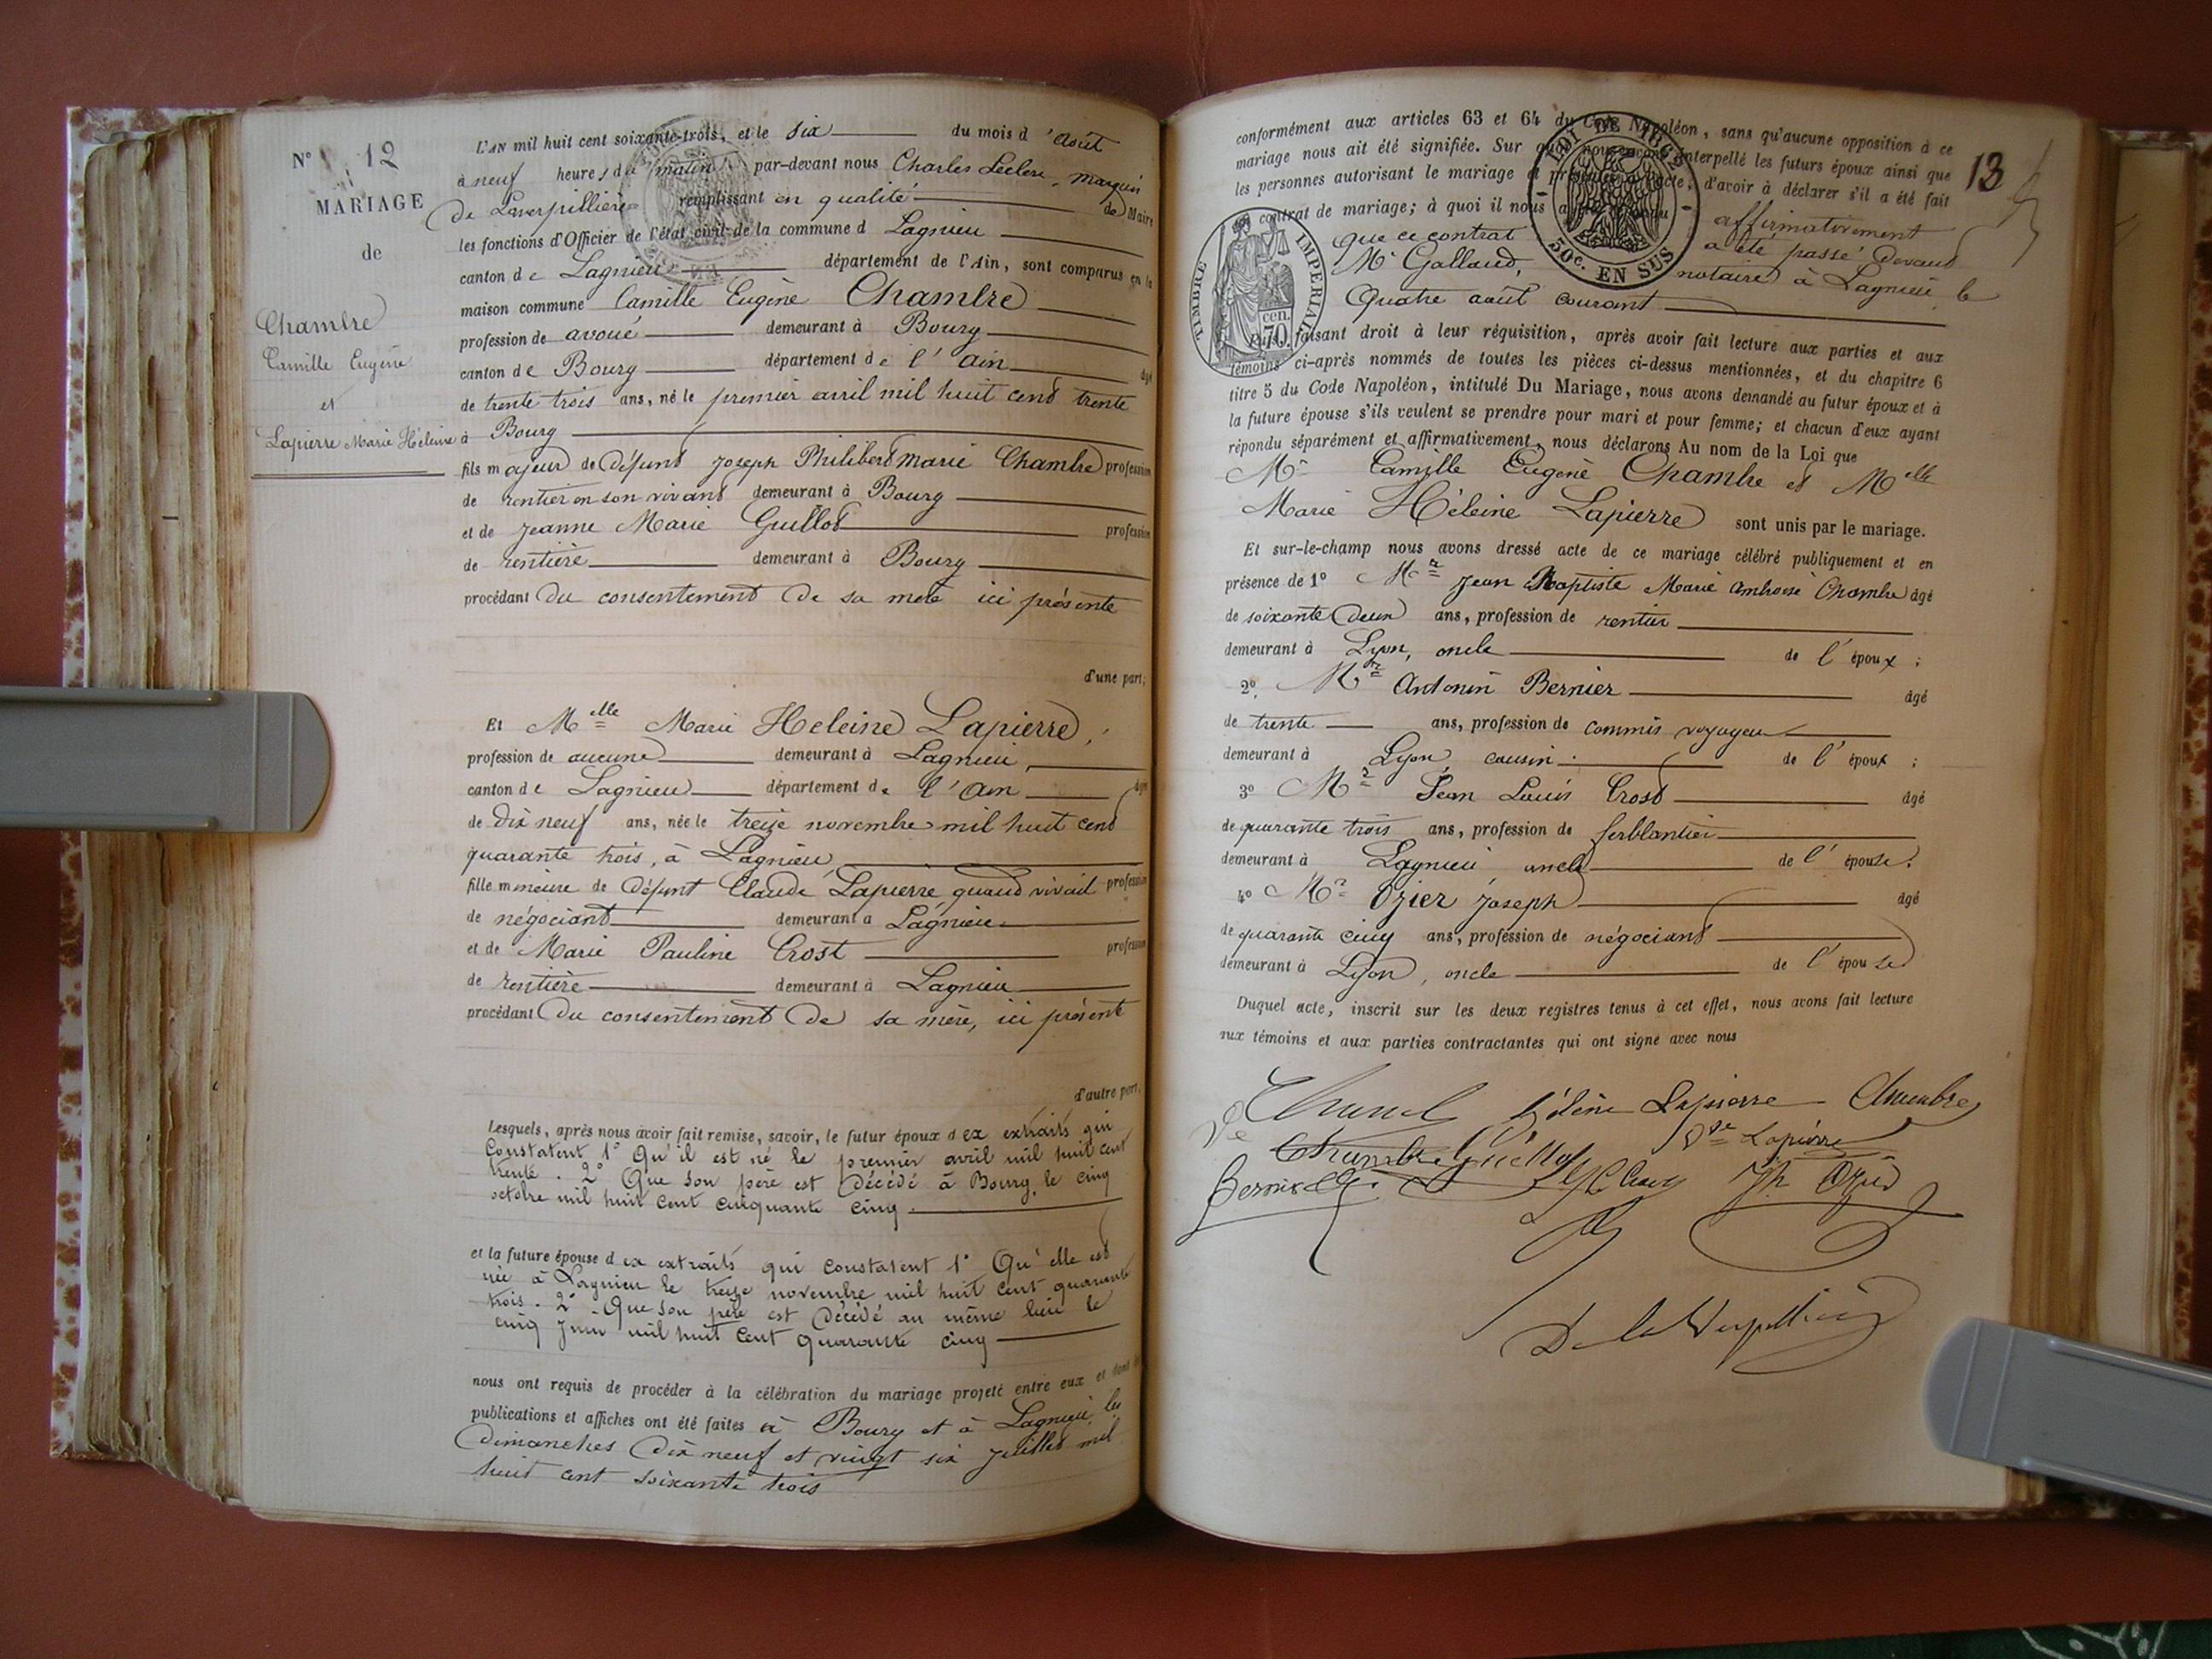 N° 12
MARIAGE
de
Chambre
Camille Eugène
et
Lapierre Marie Héleine
L'AN mil huit cent soixante-trois, et le six du mois d'août
à neuf heures du matin par-devant nous Charles Leclerc, marquis
de Laverpillière remplissant en qualité de Maire
les fonctions d'Officier de l'état civil de la commune d Lagnieu
canton de Lagnieu département de l'Ain, sont comparus en la
maison commune Camille Eugène Chambre
profession de avoué demeurant à Bourg
canton de Bourg département de l'Ain âgé
de trente trois ans, né le premier avril mil huit cent trente
à Bourg
fils majeur de défunt Joseph Philibert Marie Chambre profession
de rentier en son vivant demeurant à Bourg
et de Jeanne Marie Guillot profession
de rentière demeurant à Bourg
procédant du consentement de sa mère ici présente
d'une part;
Et Melle Marie Heleine Lapierre,
profession de aucune demeurant à Lagnieu,
canton de Lagnieu département de l'Ain âgée
de dix neuf ans, née le treize novembre mil huit cent
quarante trois, à Lagnieu,
fille mineure de défunt Claude Lapierre, quand vivait profession
de négociant demeurant à Lagnieu
et de Marie Pauline Crost profession
de rentière demeurant à Lagnieu
procédant du consentement de sa mère, ici présente
d'autre part.
Lesquels, après nous avoir fait remise, savoir, le futur époux d ex extraits qui
Constatent 1° Qu'il est né le premier avril mil huit cent
trente. 2° Que son père est décédé à Bourg, le cinq
octobre mil huit cent cinquante cinq.
et la future épouse d ex extraits qui constatent 1° Qu'elle est
née à Lagnieu le treize novembre mil huit cent quarante
trois. 2° Que son père est décédé au même lieu le
cinq Juin mil huit cent quarante cinq
nous ont requis de procéder à la célébration du mariage projeté entre eux et dont les
publications et affiches ont été faites à Bourg et à Lagnieu les
dimanches dix neuf et vingt six juillet mil
huit cent soixante trois
13
conformément aux articles 63 et 64 du Code Napoléon, sans qu'aucune opposition à ce
mariage nous ait été signifiée. Sur quoi nous avons interpellé les futurs époux ainsi que
les personnes autorisant le mariage et présentes à l'acte, d'avoir à déclarer s'il a été fait
un contrat de mariage; à quoi il nous a été répondu affirmativement
que ce contrat a été passé devant
Me Galland, notaire à Lagnieu le
quatre août courant
LOI DE 1862
50c. EN SUS
TIMBRE IMPERIAL
70 cen.
Puis, faisant droit à leur réquisition, après avoir fait lecture aux parties et aux
témoins ci-après nommés de toutes les pièces ci-dessus mentionnées, et du chapitre 6
titre 5 du Code Napoléon, intitulé Du Mariage, nous avons demandé au futur époux et à
la future épouse s'ils veulent se prendre pour mari et pour femme; et chacun d'eux ayant
répondu séparément et affirmativement, nous déclarons Au nom de la Loi que
Mr Camille Eugène Chambre et Melle
Marie Héleine Lapierre sont unis par le mariage.
Et sur-le-champ nous avons dressé acte de ce mariage célébré publiquement et en
présence de 1° Mr Jean Baptiste Marie Ambroise Chambre âgé
de soixante deux ans, profession de rentier
demeurant à Lyon, oncle de l'époux;
2°. Mr Antonin Bernier âgé
de trente ans, profession de commis voyageur
demeurant à Lyon, cousin de l'époux;
3° Mr Jean Louis Crost âgé
de quarante trois ans, profession de ferblantier
demeurant à Lagnieu, oncle de l'épouse.
4° Mr Ozier Joseph âgé
de quarante cinq ans, profession de négociant
demeurant à Lyon, oncle de l'épouse
Duquel acte, inscrit sur les deux registres tenus à cet effet, nous avons fait lecture
aux témoins et aux parties contractantes qui ont signé avec nous
Hélène Lapierre Chambre
Ve Chambre Guillot Vve Lapierre
Bernier Jh Ozier
De la Verpillière